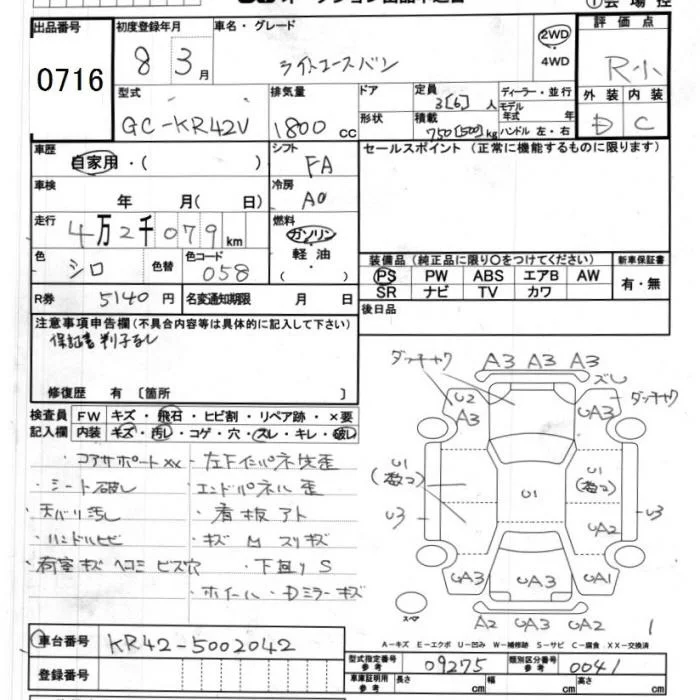 オークション出品申込書
①会場控
出品番号
0716
初度登録年月
8 3月
車名・グレード
ライトエースバン
2WD
4WD
評価点
R小
外装 内装
D C
型式
GC-KR42V
排気量
1800 cc
ドア
形状
定員
3[6]人
積載
750[500]kg
ディーラー・並行
モデル年式 年式
ハンドル 左・右
車歴
自家用・( )
シフト
FA
セールスポイント(正常に機能するものに限ります)
車検
年 月( 日)
冷房
AC
走行
4万2千079km
燃料
ガソリン
軽油
・( )
色
シロ
色替
色コード
058
装備品(純正品に限り○をつけてください)
PS PW ABS エアB AW
SR ナビ TV カワ
新車保証書
有・無
R券
5140円
名変通知期限 月 日
後日品
注意事項申告欄(不具合内容等は具体的に記入して下さい)
保証書判子なし
修復歴 有〔箇所 〕
検査員記入欄
FW キズ・飛石・ヒビ割・リペア跡・×要
内装 キズ・汚レ・コゲ・穴・スレ・キレ・破レ
・コアサポートXX ・左下インパネ先歪
・シート破レ ・エンドパネル歪
・天バリ汚レ ・看板アト
・ハンドルヒビ ・キズ M スリキズ
・荷室キズ ヘコミ ビス穴 ・下回りS
・ホイール・Dミラーキズ
ダッチャク A3 A3 A3
ズレ
U2
A3
UA3
ダッチャク
U1
(数コ)
U1
U1
(数コ)
U3
U3
UA2
UA3 UA3 UA1
スペア
A2 UA3 UA2
1
A-キズ E-エクボ U-凹み W-補修跡 S-サビ C-腐食 XX-交換済
①車台番号
KR42-5002042
登録番号
型式指定番号
参考
09275
類別区分番号
参考
0041
車庫証明用
参考
長さ cm 幅 cm 高さ cm